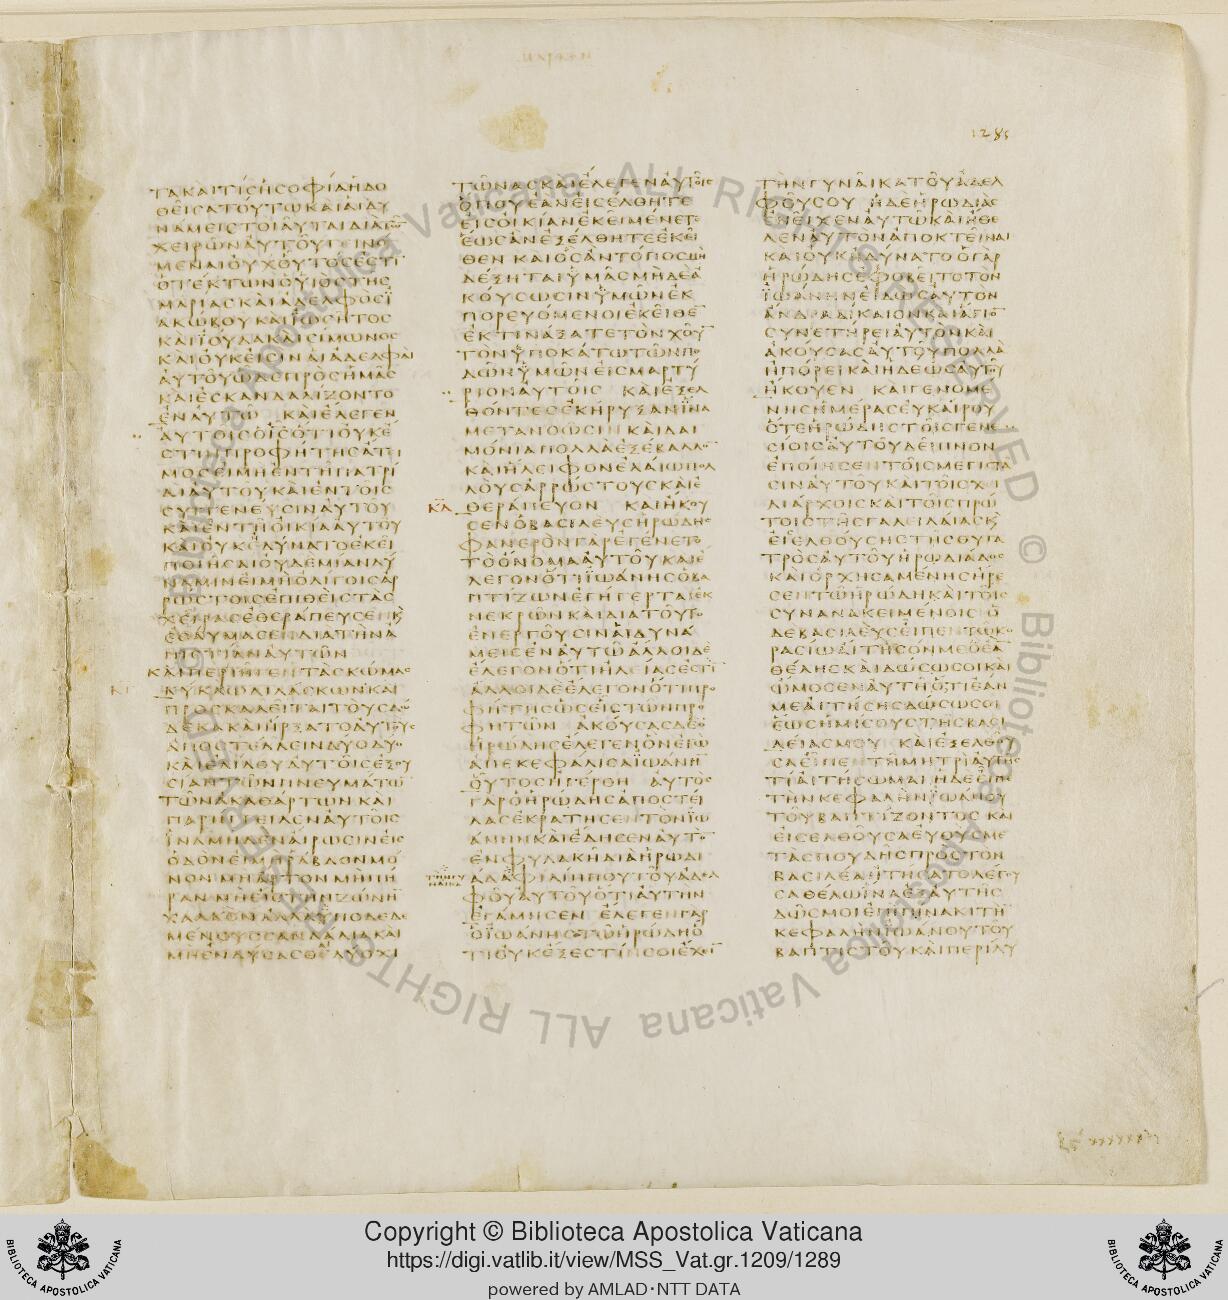 1285
ΤΑΚΑΙΤΙCΗCΟΦΙΑΗΔΟ
ΘΕΙCΑΤΟΥΤΩΚΑΙΑΙΔΥ
ΝΑΜΕΙCΤΟΙΑΥΤΑΙΔΙΑΤΩ
ΧΕΙΡΩΝΑΥΤΟΥΓΕΙΝΟ
ΜΕΝΑΙΟΥΧΟΥΤΟCΕCΤΙ
ΟΤΕΚΤΩΝΟΥΙΟCΤΗC
ΜΑΡΙΑCΚΑΙΑΔΕΛΦΟCΪ
ΑΚΩΒΟΥΚΑΙΪΩCΗΤΟC
ΚΑΙΪΟΥΔΑΚΑΙCΙΜΩΝΟC
ΚΑΙΟΥΚΕΙCΙΝΑΙΑΔΕΛΦΑΙ
ΑΥΤΟΥΩΔΕΠΡΟCΗΜΑC
ΚΑΙΕCΚΑΝΔΑΛΙΖΟΝΤΟ
ΕΝΑΥΤΩ ΚΑΙΕΛΕΓΕΝ
ΑΥΤΟΙCΟΙCΟΤΙΟΥΚΕ
CΤΙΠΡΟΦΗΤΗCΑΤΙ
ΜΟCΕΙΜΗΕΝΤΗΠΑΤΡΙ
ΔΙΑΥΤΟΥΚΑΙΕΝΤΟΙC
CΥΓΓΕΝΕΥCΙΝΑΥΤΟΥ
ΚΑΙΕΝΤΗΟΙΚΙΑΑΥΤΟΥ
ΚΑΙΟΥΚΕΔΥΝΑΤΟΕΚΕΙ
ΠΟΙΗCΑΙΟΥΔΕΜΙΑΝΔΥ
ΝΑΜΙΝΕΙΜΗΟΛΙΓΟΙCΑΡ
ΡΩCΤΟΙCΕΠΙΘΕΙCΤΑC
ΧΕΙΡΑCΕΘΕΡΑΠΕΥCΕΝΚ
ΕΘΑΥΜΑCΕΝΔΙΑΤΗΝΑ
ΠΙCΤΙΑΝΑΥΤΩΝ
ΚΑΙΠΕΡΙΗΓΕΝΤΑCΚΩΜΑC
ΚΥΚΛΩΔΙΔΑCΚΩΝΚΑΙ
ΠΡΟCΚΑΛΕΙΤΑΙΤΟΥCΔΩ
ΔΕΚΑΚΑΙΗΡΞΑΤΟΑΥΤΟΥC
ΑΠΟCΤΕΛΛΕΙΝΔΥΟΔΥΟ
ΚΑΙΕΔΙΔΟΥΑΥΤΟΙCΕΞΟΥ
CΙΑΝΤΩΝΠΝΕΥΜΑΤΩ
ΤΩΝΑΚΑΘΑΡΤΩΝΚΑΙ
ΠΑΡΗΓΓΕΙΛΕΝΑΥΤΟΙC
ΪΝΑΜΗΔΕΝΑΙΡΩCΙΝΕΙC
ΟΔΟΝΕΙΜΗΡΑΒΔΟΝΜΟ
ΝΟΝΜΗΑΡΤΟΝΜΗΠΗ
ΡΑΝΜΗΕΙCΤΗΝΖΩΝΗ
ΧΑΛΚΟΝΑΛΛΑΫΠΟΔΕΔΕ
ΜΕΝΟΥCCΑΝΔΑΛΙΑΚΑΙ
ΜΗΕΝΔΥCΑCΘΑΙΔΥΟΧΙ
ΤΩΝΑCΚΑΙΕΛΕΓΕΝΑΥΤΟΙC
ΟΠΟΥΕΑΝΕΙCΕΛΘΗΤΕ
ΕΙCΟΙΚΙΑΝΕΚΕΙΜΕΝΕΤΕ
ΕΩCΑΝΕΞΕΛΘΗΤΕΕΚΕΙ
ΘΕΝ ΚΑΙΟCΑΝΤΟΠΟCΜΗ
ΔΕΞΗΤΑΙΫΜΑCΜΗΔΕΑ
ΚΟΥCΩCΙΝΫΜΩΝΕΚ
ΠΟΡΕΥΟΜΕΝΟΙΕΚΕΙΘΕ
ΕΚΤΙΝΑΞΑΤΕΤΟΝΧΟΥ
ΤΟΝΫΠΟΚΑΤΩΤΩΝΠΟ
ΔΩΝΫΜΩΝΕΙCΜΑΡΤΥ
ΡΙΟΝΑΥΤΟΙC ΚΑΙΕΞΕΛ
ΘΟΝΤΕCΕΚΗΡΥΞΑΝΪΝΑ
ΜΕΤΑΝΟΩCΙΝ ΚΑΙΔΑΙ
ΜΟΝΙΑΠΟΛΛΑΕΞΕΒΑΛΛΟ
ΚΑΙΗΛΕΙΦΟΝΕΛΑΙΩΠΟΛ
ΛΟΥCΑΡΡΩCΤΟΥCΚΑΙΕ
ΘΕΡΑΠΕΥΟΝ ΚΑΙΗΚΟΥ
CΕΝΟΒΑCΙΛΕΥCΗΡΩΔΗC
ΦΑΝΕΡΟΝΓΑΡΕΓΕΝΕΤΟ
ΤΟΟΝΟΜΑΑΥΤΟΥΚΑΙΕ
ΛΕΓΟΝΟΤΙΪΩΑΝΗCΟΒΑ
ΠΤΙΖΩΝΕΓΗΓΕΡΤΑΙΕΚ
ΝΕΚΡΩΝΚΑΙΔΙΑΤΟΥΤΟ
ΕΝΕΡΓΟΥCΙΝΑΙΔΥΝΑ
ΜΕΙCΕΝΑΥΤΩΑΛΛΟΙΔΕ
ΕΛΕΓΟΝΟΤΙΗΛΕΙΑCΕCΤΙ
ΑΛΛΟΙΔΕΕΛΕΓΟΝΟΤΙΠΡΟ
ΦΗΤΗCΩCΕΙCΤΩΝΠΡΟ
ΦΗΤΩΝ ΑΚΟΥCΑCΔΕΟ
ΗΡΩΔΗCΕΛΕΓΕΝΟΝΕΓΩ
ΑΠΕΚΕΦΑΛΙCΑΪΩΑΝΗ
ΟΥΤΟCΗΓΕΡΘΗ ΑΥΤΟC
ΓΑΡΟΗΡΩΔΗCΑΠΟCΤΕΙ
ΛΑCΕΚΡΑΤΗCΕΝΤΟΝΪΩ
ΑΝΗΝΚΑΙΕΔΗCΕΝΑΥΤΟ
ΕΝΦΥΛΑΚΗΔΙΑΗΡΩΔΙ
ΤΗΝΓΥ
ΝΑΙΚΑ
ΑΔΑΦΙΛΙΠΠΟΥΤΟΥΑΔΕΛ
ΦΟΥΑΥΤΟΥΟΤΙΑΥΤΗΝ
ΕΓΑΜΗCΕΝ ΕΛΕΓΕΝΓΑΡ
ΟΪΩΑΝΗCΤΩΗΡΩΔΗΟ
ΤΙΟΥΚΕΞΕCΤΙΝCΟΙΕΧΕΙ
ΤΗΝΓΥΝΑΙΚΑΤΟΥΑΔΕΛ
ΦΟΥCΟΥ ΗΔΕΗΡΩΔΙΑC
ΕΝΕΙΧΕΝΑΥΤΩΚΑΙΗΘΕ
ΛΕΝΑΥΤΟΝΑΠΟΚΤΕΙΝΑΙ
ΚΑΙΟΥΚΗΔΥΝΑΤΟΟΓΑΡ
ΗΡΩΔΗCΕΦΟΒΕΙΤΟΤΟΝ
ΪΩΑΝΗΝΕΙΔΩCΑΥΤΟΝ
ΑΝΔΡΑΔΙΚΑΙΟΝΚΑΙΑΓΙΟ
CΥΝΕΤΗΡΕΙΑΥΤΟΝΚΑΙ
ΑΚΟΥCΑCΑΥΤΟΥΠΟΛΛΑ
ΗΠΟΡΕΙΚΑΙΗΔΕΩCΑΥΤΟΥ
ΗΚΟΥΕΝ ΚΑΙΓΕΝΟΜΕ
ΝΗCΗΜΕΡΑCΕΥΚΑΙΡΟΥ
ΟΤΕΗΡΩΔΗCΤΟΙCΓΕΝΕ
CΙΟΙCΑΥΤΟΥΔΕΙΠΝΟΝ
ΕΠΟΙΗCΕΝΤΟΙCΜΕΓΙCΤΑ
CΙΝΑΥΤΟΥΚΑΙΤΟΙCΧΙ
ΛΙΑΡΧΟΙCΚΑΙΤΟΙCΠΡΩ
ΤΟΙCΤΗCΓΑΛΕΙΛΑΙΑCΚ
ΕΙCΕΛΘΟΥCΗCΤΗCΘΥΓΑ
ΤΡΟCΑΥΤΟΥΗΡΩΔΙΑΔΟC
ΚΑΙΟΡΧΗCΑΜΕΝΗCΗΡΕ
CΕΝΤΩΗΡΩΔΗΚΑΙΤΟΙC
CΥΝΑΝΑΚΕΙΜΕΝΟΙCΟ
ΔΕΒΑCΙΛΕΥCΕΙΠΕΝΤΩΚΟ
ΡΑCΙΩΑΙΤΗCΟΝΜΕΟΕΑ
ΘΕΛΗCΚΑΙΔΩCΩCΟΙΚΑΙ
ΩΜΟCΕΝΑΥΤΗΟΤΙΕΑΝ
ΜΕΑΙΤΗCΗCΔΩCΩCΟΙ
ΕΩCΗΜΙCΟΥCΤΗCΒΑCΙ
ΛΕΙΑCΜΟΥ ΚΑΙΕΞΕΛΘΟΥ
CΑΕΙΠΕΝΤΗΜΗΤΡΙΑΥΤΗC
ΤΙΑΙΤΗCΩΜΑΙΗΔΕΕΙΠΕ
ΤΗΝΚΕΦΑΛΗΝΪΩΑΝΟΥ
ΤΟΥΒΑΠΤΙΖΟΝΤΟC ΚΑΙ
ΕΙCΕΛΘΟΥCΑΕΥΘΥCΜΕ
ΤΑCΠΟΥΔΗCΠΡΟCΤΟΝ
ΒΑCΙΛΕΑΗΤΗCΑΤΟΛΕΓΟΥ
CΑΘΕΛΩΪΝΑΕΞΑΥΤΗC
ΔΩCΜΟΙΕΠΙΠΙΝΑΚΙΤΗ
ΚΕΦΑΛΗΝΪΩΑΝΟΥΤΟΥ
ΒΑΠΤΙCΤΟΥΚΑΙΠΕΡΙΛΥ
Copyright © Biblioteca Apostolica Vaticana
https://digi.vatlib.it/view/MSS_Vat.gr.1209/1289
powered by AMLAD·NTT DATA
BIBLIOTECA APOSTOLICA VATICANA
BIBLIOTECA APOSTOLICA VATICANA